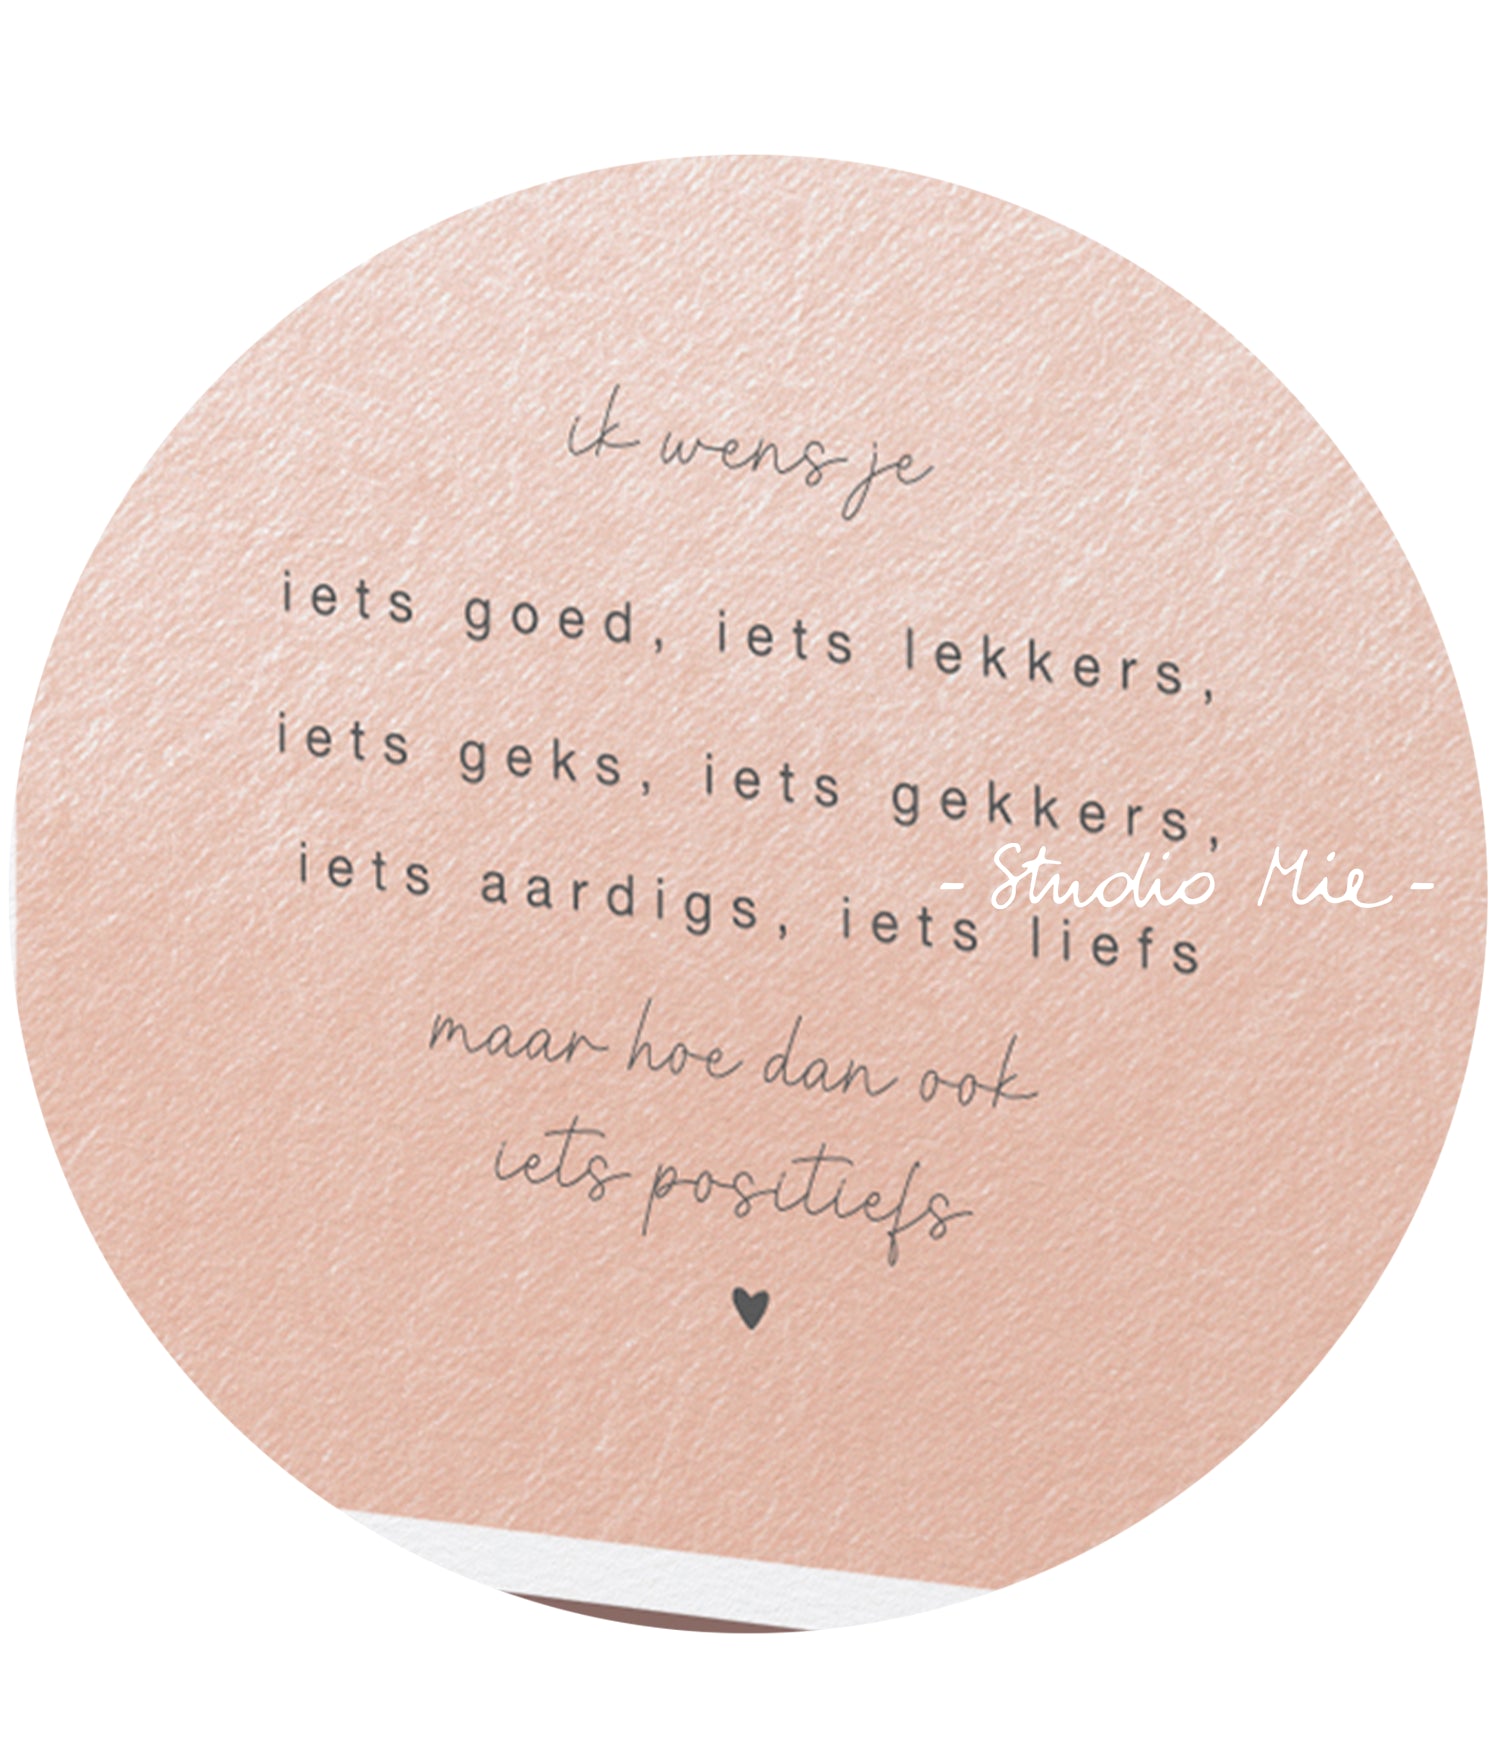 ik wens je
iets goed, iets lekkers,
iets geks, iets gekkers,
- Studio Mie -
iets aardigs, iets liefs
maar hoe dan ook
iets positiefs